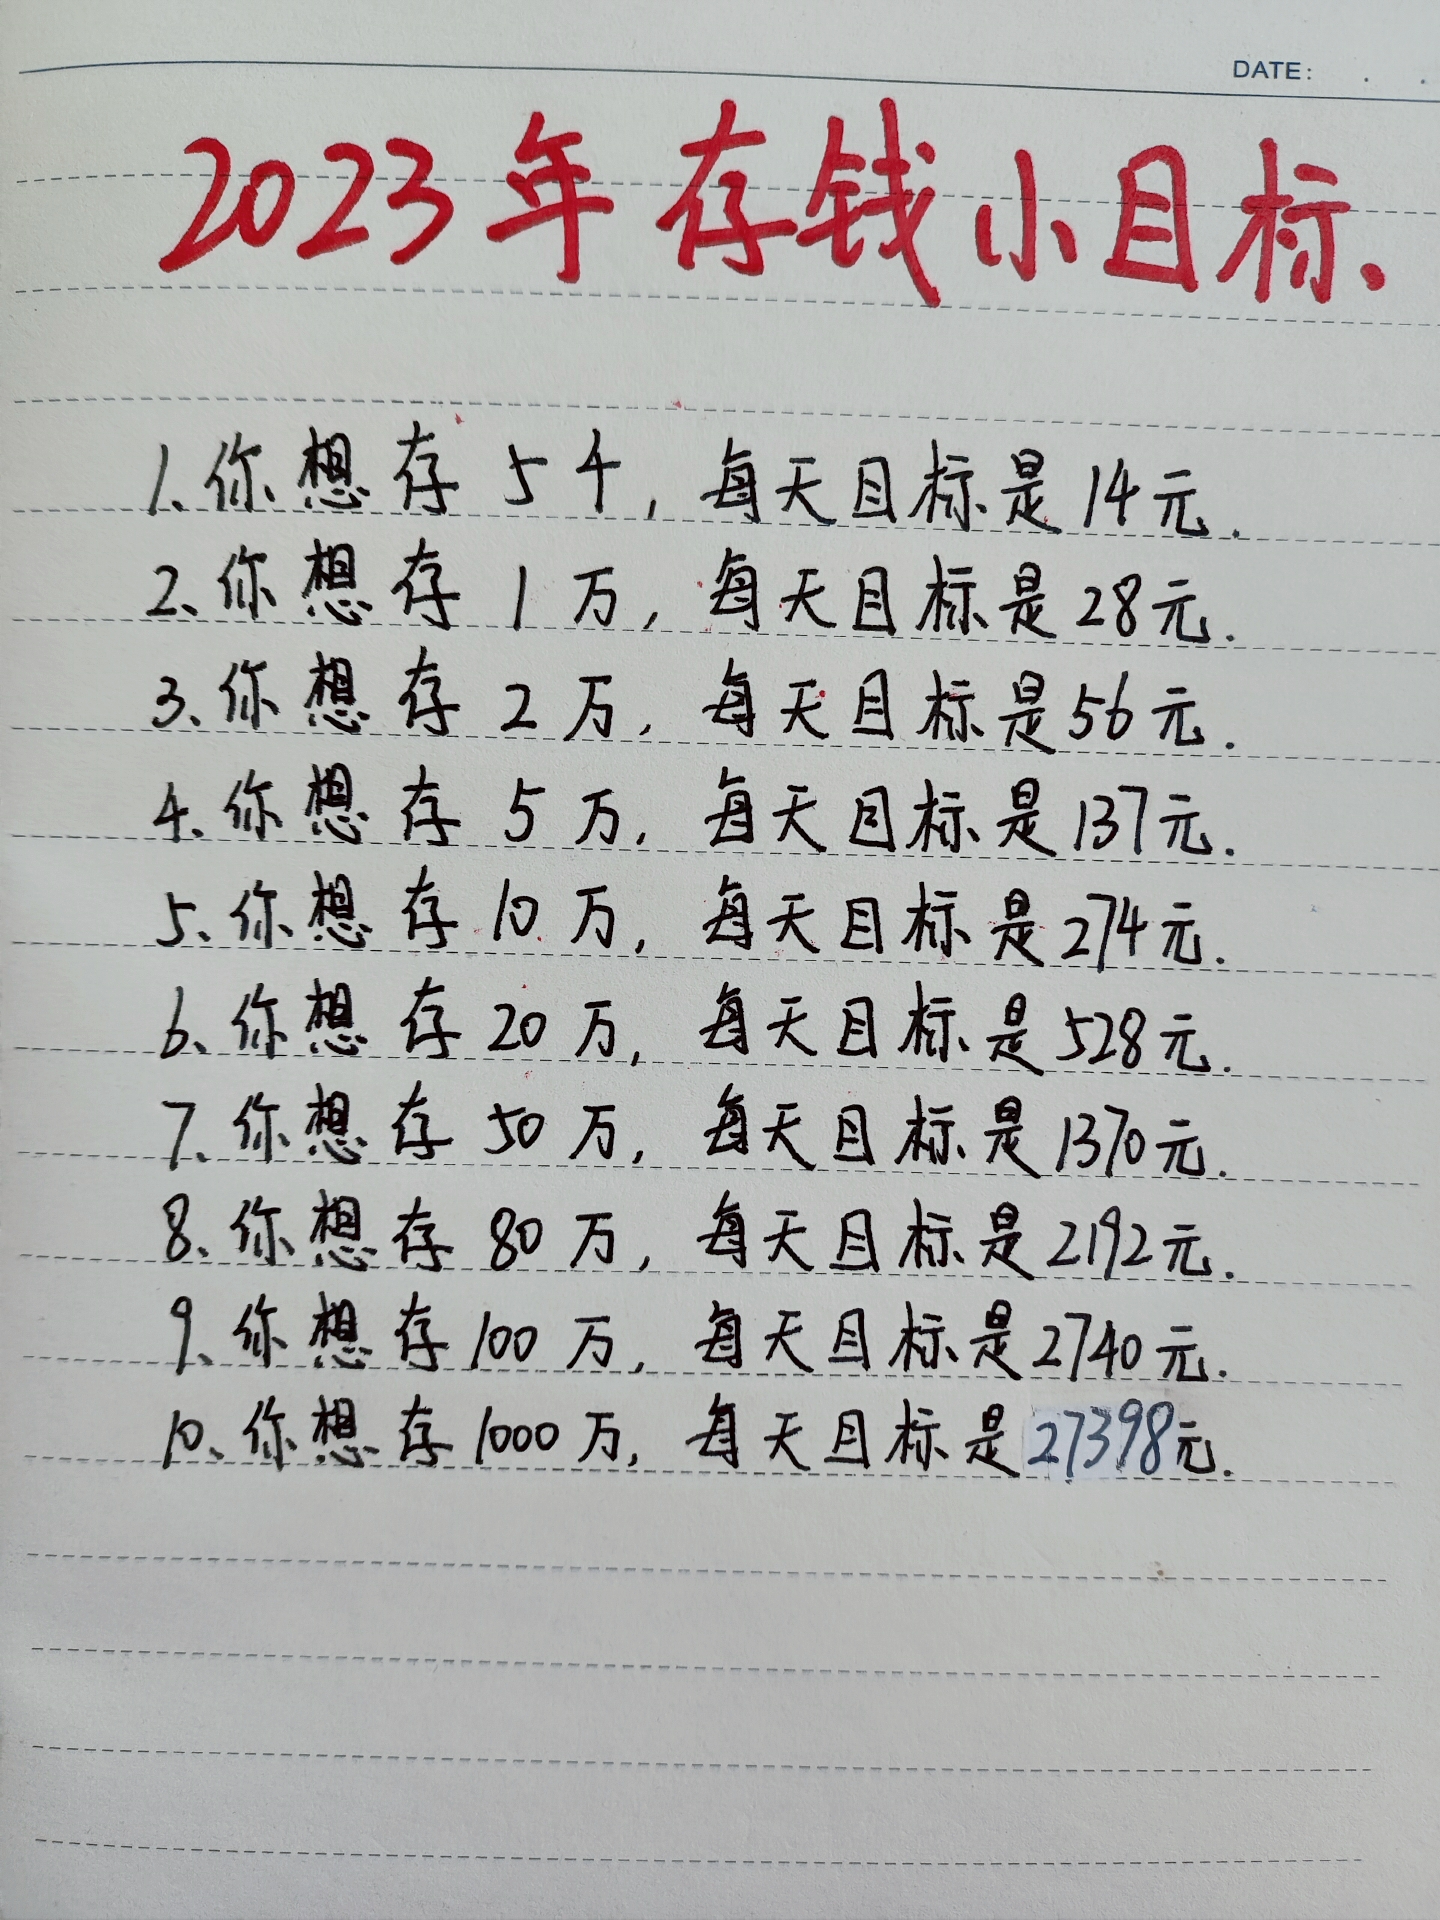 DATE: . .
2023年存钱小目标、
1、你想存5千,每天目标是14元.
2、你想存1万,每天目标是28元.
3、你想存2万,每天目标是56元.
4、你想存5万,每天目标是137元.
5、你想存10万,每天目标是274元.
6、你想存20万,每天目标是528元.
7、你想存50万,每天目标是1370元.
8、你想存80万,每天目标是2192元.
9、你想存100万,每天目标是2740元.
10、你想存1000万,每天目标是27398元.